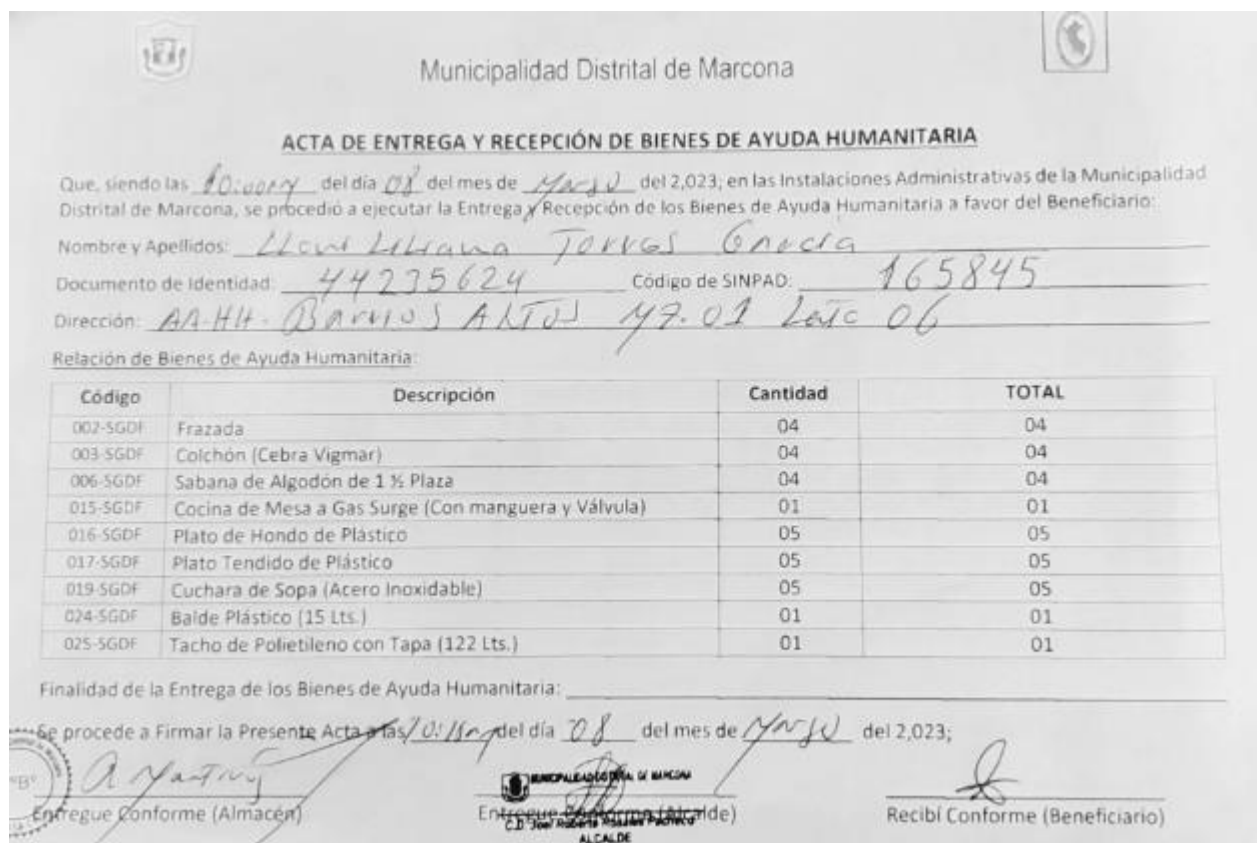 Municipalidad Distrital de Marcona
ACTA DE ENTREGA Y RECEPCIÓN DE BIENES DE AYUDA HUMANITARIA
Que, siendo las 10:00 del día 08 del mes de Marzo del 2,023; en las Instalaciones Administrativas de la Municipalidad
Distrital de Marcona, se procedió a ejecutar la Entrega y Recepción de los Bienes de Ayuda Humanitaria a favor del Beneficiario:
Nombre y Apellidos: Liliana Torres Garcia
Documento de Identidad: 44235624 Código de SINPAD: 165845
Dirección: AA-HH- Barrios Altos Mz. 01 Lote 06
Relación de Bienes de Ayuda Humanitaria:
Código Descripción Cantidad TOTAL
002-SGDF Frazada 04 04
003-SGDF Colchón (Cebra Vigmar) 04 04
006-SGDF Sabana de Algodón de 1 ½ Plaza 04 04
015-SGDF Cocina de Mesa a Gas Surge (Con manguera y Válvula) 01 01
016-SGDF Plato de Hondo de Plástico 05 05
017-SGDF Plato Tendido de Plástico 05 05
019-SGDF Cuchara de Sopa (Acero Inoxidable) 05 05
024-SGDF Balde Plástico (15 Lts.) 01 01
025-SGDF Tacho de Polietileno con Tapa (122 Lts.) 01 01
Finalidad de la Entrega de los Bienes de Ayuda Humanitaria:
Se procede a Firmar la Presente Acta a las del día 08 del mes de Marzo del 2,023;
MUNICIPALIDAD DISTRITAL DE MARCONA
Entregue Conforme (Almacén) Entregue Conforme (Alcalde) Recibí Conforme (Beneficiario)
C.D. Joel Roberto Rosales Pacheco
ALCALDE